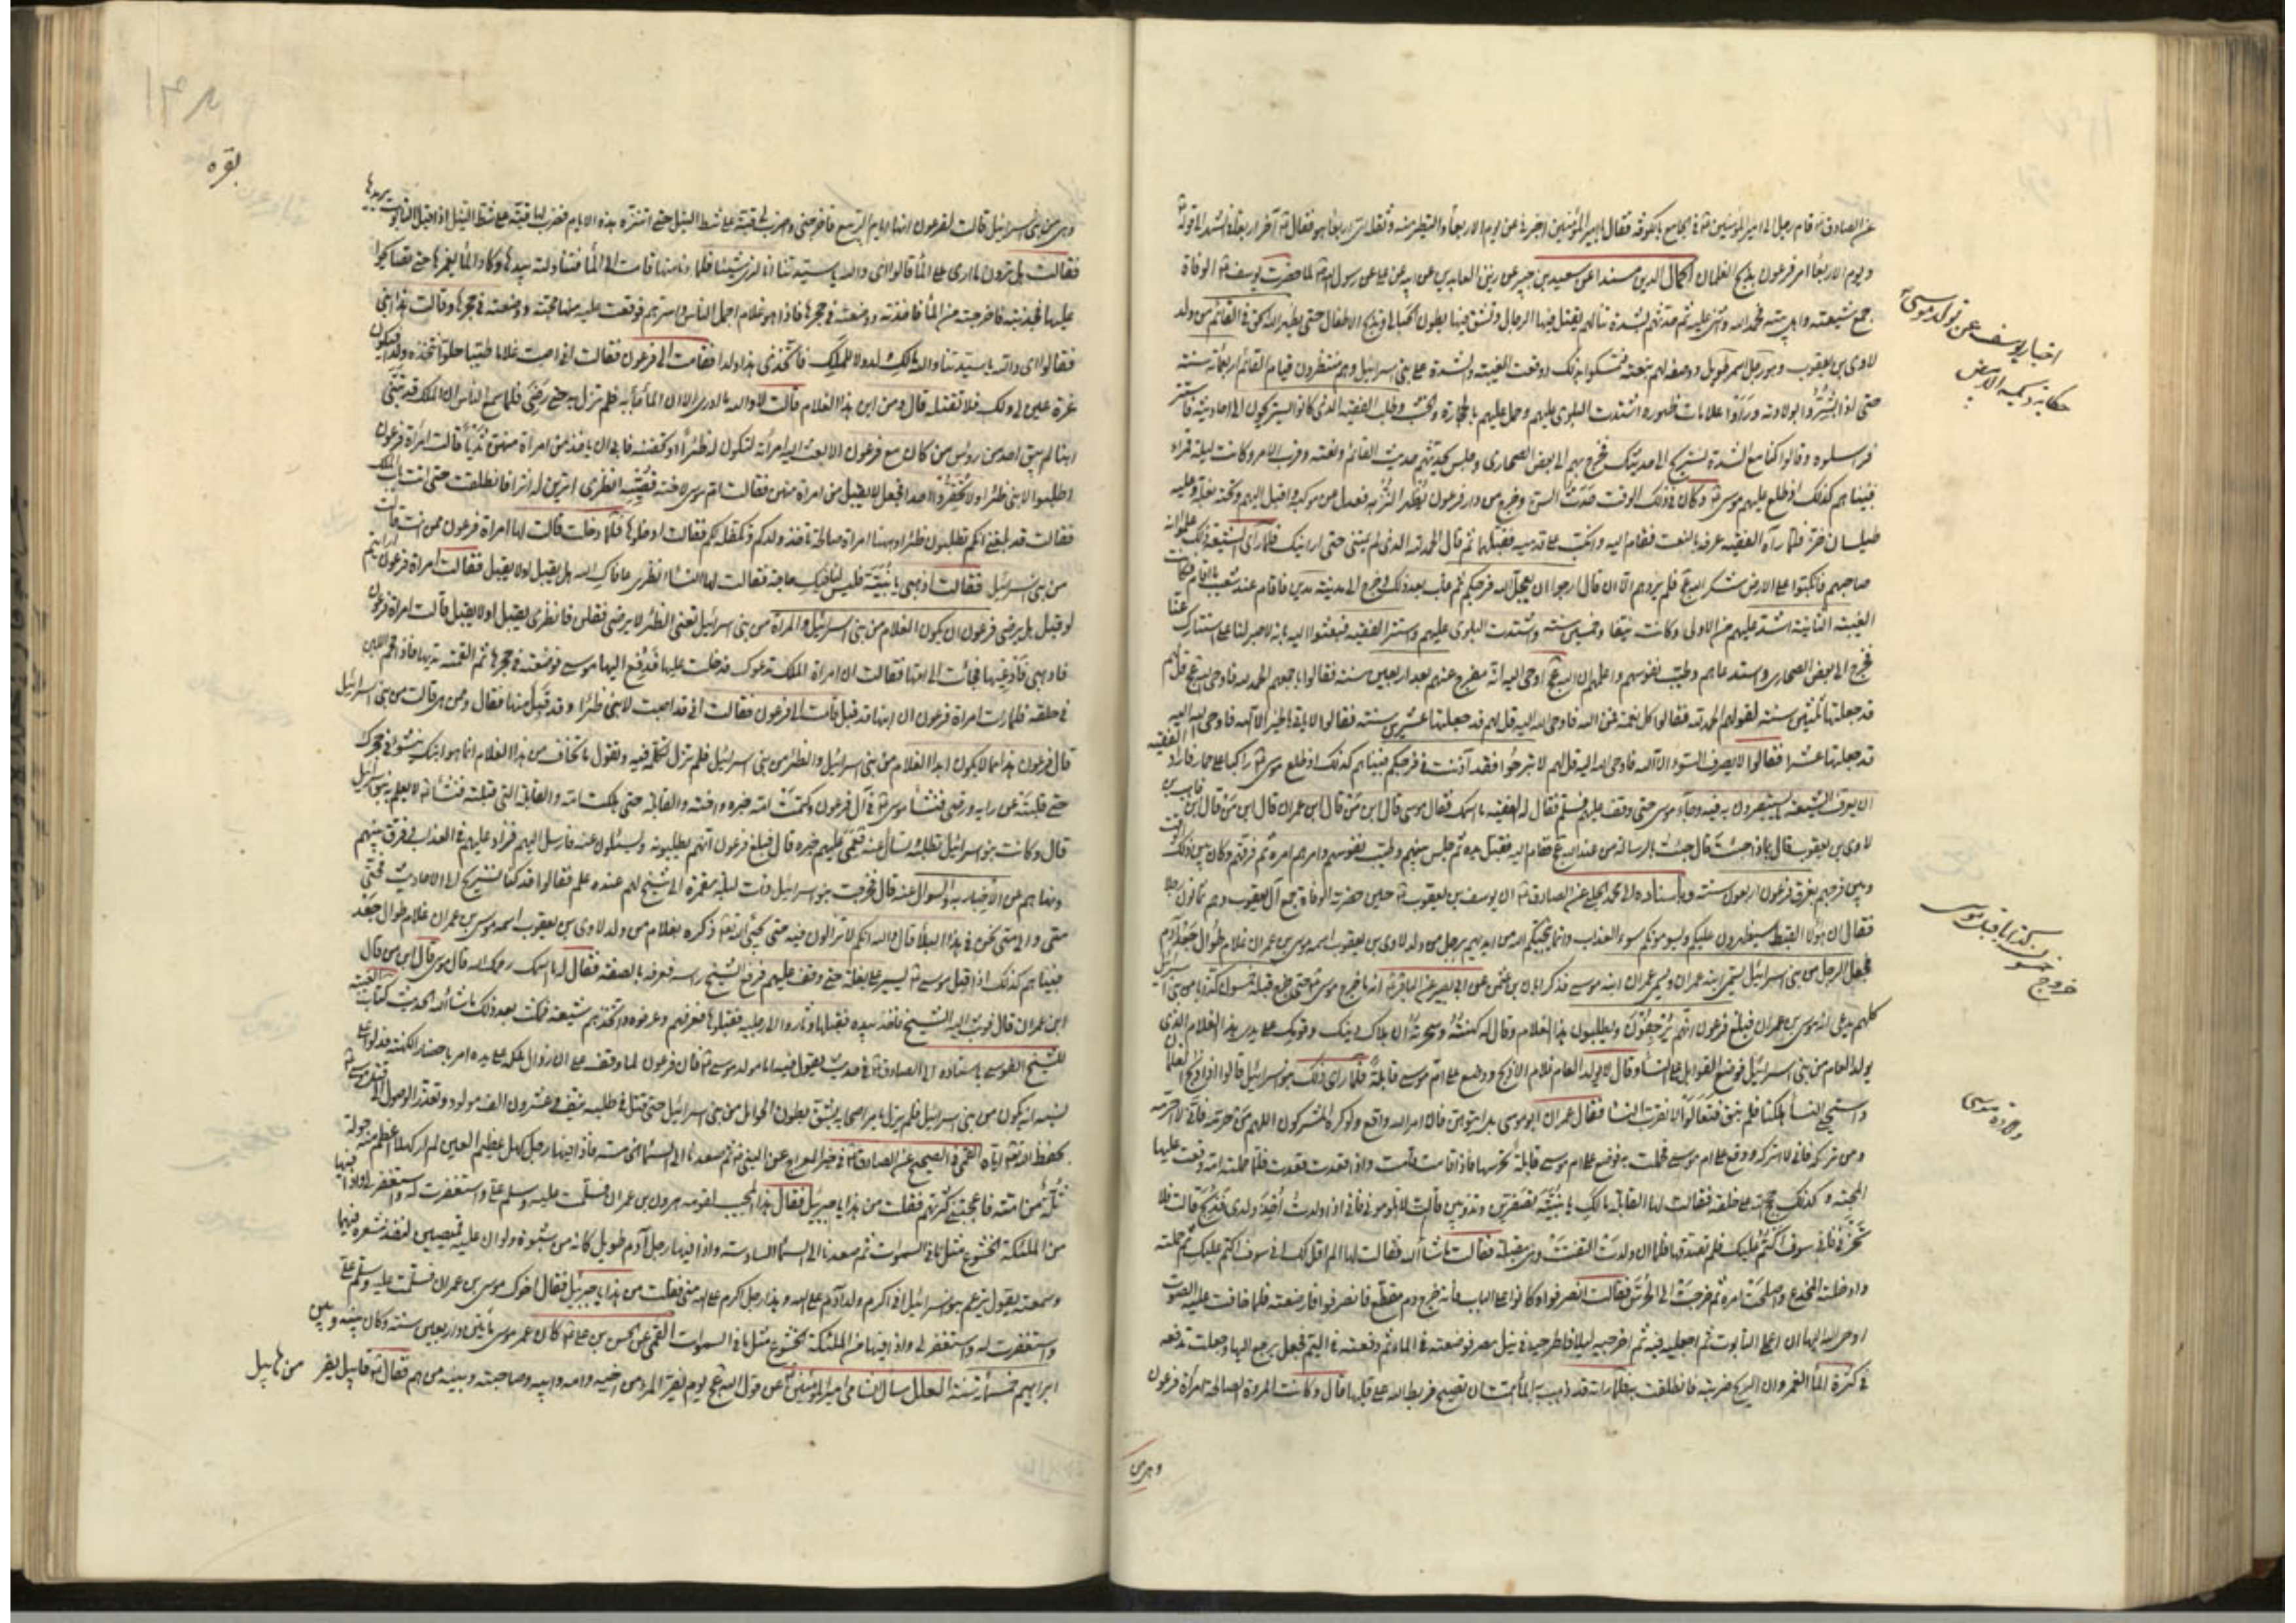 عن الصادق ع قام رجل الى امير المؤمنين ع في الجامع بالكوفة فقال يا امير المؤمنين اخبرني عن يوم الاربعا والتطير منه وثقله اى اربعا هو فقال ع آخر اربعا في الشهر الى قوله
ويوم الاربعا امر فرعون بذبح الغلمان اكمال الدين مسندا عن سعيد بن جبير عن زين العابدين عن ابيه عن علي عن رسول الله لما حضرت يوسف الوفاة
جمع شيعته واهل بيته فحمد الله واثنى عليه ثم حدثهم بشدة تنالهم يقتل فيها الرجال وتشق فيها بطون الحبالى وتذبح الاطفال حتى يظهر الله الحق في القائم من ولد
لاوى بن يعقوب وهو رجل اسمر طويل ووصفه لهم بنعته فتمسكوا بذلك ووقعت الغيبة والشدة على بنى اسرائيل وهم منتظرون قيام القائم اربعمائة سنة
حتى اذا بشروا بولادته ورأوا علامات ظهوره اشتدت البلوى عليهم وحمل عليهم بالحجارة وطلب الفقيه الذى كانوا يستريحون الى احاديثه فاستتر
فراسلوه وقالوا كنا مع الشدة نستريح الى حديثك فخرج بهم الى بعض الصحارى وجلس يحدثهم حديث القائم ونعته وقرب الامر وكانت ليلة قمراء
فبيناهم كذلك اذ طلع عليهم موسى ع وكان في ذلك الوقت حدث السن وخرج من دار فرعون يظهر النزهة فعدل عن موكبه واقبل اليهم وتحته بغلة وعليه
طيلسان خز فلما رآه الفقيه عرفه بالنعت فقام اليه وانكب على قدميه فقبلها ثم قال الحمد لله الذى لم يمتنى حتى ارانيك فلما رأى الشيعة ذلك علموا انه
صاحبهم فانكبوا على الارض شكرا لله ع فلم يزدهم الا ان قال ارجوا ان يعجل الله فرجكم ثم غاب بعد ذلك وخرج الى مدينة مدين فاقام عند شعيب ما اقام فكانت
الغيبة الثانية اشد عليهم من الاولى وكانت نيفا وخمسين سنة واشتدت البلوى عليهم واستتر الفقيه فبعثوا اليه بانه لا صبر لنا على استتارك عنا
فخرج الى بعض الصحارى واستدعاهم وطيب نفوسهم واعلمهم ان الله ع اوحى اليه انه مفرج عنهم بعد اربعين سنة فقالوا باجمعهم الحمد لله فاوحى الله ع قل لهم
قد جعلتها ثلثين سنة لقولهم الحمد لله فقالوا كل نعمة فمن الله فاوحى الله اليه قل لهم قد جعلتها عشرين سنة فقالوا لا يأتى بالخير الا الله فاوحى الله اليه
قد جعلتها عشرا فقالوا لا يصرف السوء الا الله فاوحى الله اليه قل لهم لا تبرحوا فقد آذنت في فرجكم فبيناهم كذلك اذ طلع موسى ع راكبا على حمار فاراد الفقيه
ان يعرف الشيعة يستبصرون به فيه وجاء موسى حتى وقف عليهم فسلم فقال له الفقيه ما اسمك فقال موسى قال ابن من قال ابن عمران قال ابن من قال ابن قاهث بن
لاوى بن يعقوب قال بماذا جئت قال جئت بالرسالة من عند الله ع فقام اليه فقبل يده ثم جلس بينهم وطيب نفوسهم وامرهم امره ثم فرقهم وكان بين ذلك الوقت
وبين فرجهم بغرق فرعون اربعون سنة وباسناده الى محمد الحلبي عن الصادق ع ان يوسف بن يعقوب ع حين حضرته الوفاة جمع آل يعقوب وهم ثمانون رجلا
فقال ان هؤلا القبط سيظهرون عليكم ويسومونكم سوء العذاب وانما ينجيكم الله من ايديهم برجل من ولد لاوى بن يعقوب اسمه موسى بن عمران غلام طوال جعد آدم
فجعل الرجل من بنى اسرائيل يسمى ابنه عمران ويسمى عمران ابنه موسى فذكر ابان بن عثمن عن ابى بصير عن الباقر ع انه ما خرج موسى ع حتى خرج قبله خمسون كذابا من بنى اسرائيل
كلهم يدعى انه موسى بن عمران فبلغ فرعون انهم يرجفون به ويطلبون هذا الغلام وقال له كهنته وسحرته ان هلاك دينك وقومك على يدى هذا الغلام الذى
يولد العام من بنى اسرائيل فوضع القوابل على النسا وقال لا يولد العام غلام الا ذبح ووضع على ام موسى قابلة فلما رأى ذلك بنو اسرائيل قالوا اذا ذبح الغلمان
واستحيي النسا هلكنا فلم نبق فتعالوا لا نقرب النسا فقال عمران ابو موسى بل ايتوهن فان امر الله واقع ولو كره المشركون اللهم من حرمه فانى لا احرمه
ومن تركه فانى لا اتركه ووقع على ام موسى فحملت به فوضع على ام موسى قابلة تحرسها فاذا قامت قامت واذا قعدت قعدت فلما حملته امه وقعت عليها
المحبة وكذلك حجج الله على خلقه فقالت لها القابلة مالك يا بنية تصفرين وتذوبين قالت لا تلومونى فانى اذا ولدت اخذ ولدى فذبح قالت فلا
تحزنى فانى سوف اكتم عليك فلم تصدقها فلما ان ولدت التفتت وهى مقبلة فقالت ما شاء الله فقالت لها الم اقل لك انى سوف اكتم عليك ثم حملته
وادخلته المخدع واصلحت امره ثم خرجت الى الحرس فقالت انصرفوا وكانوا على الباب فانه خرج دم مقطع فانصرفوا فارضعته فلما خافت عليه الصوت
اوحى الله اليها ان اعملى التابوت ثم اجعليه فيه ثم اخرجيه ليلا فاطرحيه في نيل مصر فوضعته في الماء ثم دفعته في اليم فجعل يرجع اليها وجعلت تدفعه
في كثرة الماء الغمر وان الريح ضربته فانطلقت به فلما رأته قد ذهب به الماء همت ان تصيح فربط الله على قلبها قال وكانت المرءة الصالحة امرأة فرعون
وهى من
اخبار يوسف عن تولد موسى ع
خروج خمسون كذابا قبل موسى
ولادة موسى
بقره
وهى من بنى اسرائيل قالت لفرعون انها ايام الربيع فاخرجنى واضرب لى قبة على شط النيل حتى اتنزه هذه الايام فضرب لها قبة على شط النيل اذ اقبل التابوت يريدها
فقالت هل ترون ما ارى على الماء قالوا اى والله يا سيدتنا انا لنرى شيئا فلما دنا منها قامت الى الماء فتناولته بيدها وكاد الماء يغمرها حتى تصايحوا
عليها فجذبته فاخرجته من الماء فاخذته ووضعته في حجرها فاذا هو غلام اجمل الناس واسرهم فوقعت عليه منها محبة ووضعته في حجرها وقالت هذا ابنى
فقالوا اى والله يا سيدتنا والله مالك ولد ولا للملك فاتخذى هذا ولدا فقامت الى فرعون فقالت انى اصبت غلاما طيبا حلوا نتخذه ولدا فيكون
قرة عين لى ولك فلا تقتله قال ومن اين هذا الغلام قالت لا والله ما ادرى الا ان الماء جاء به فلم تزل به حتى رضى فلما سمع الناس ان الملك قد تبنى
ابنا لم يبق احد من رؤس من كان مع فرعون الا بعث اليه امرأته لتكون له ظئرا او تحضنه فابى ان يأخذ من امرأة منهن ثديا قالت امرأة فرعون
اطلبوا لابنى ظئرا ولا تحقروا احدا فجعل لا يقبل من امرأة منهن فقالت ام موسى لاخته قصيه انظرى اترين له اثرا فانطلقت حتى اتت باب الملك
فقالت قد بلغنى انكم تطلبون ظئرا وههنا امرأة صالحة تأخذ ولدكم وتكفله لكم فقالت ادخلوها فلما دخلت قالت لها امرأة فرعون ممن انت قالت
من بنى اسرائيل فقالت اذهبى يا بنية فليس لنا فيك حاجة فقالت لها النسا انظرى عافاك الله هل يقبل او لا يقبل فقالت امرأة فرعون ارأيتم
لو قبل هل يرضى فرعون ان يكون الغلام من بنى اسرائيل والمرأة من بنى اسرائيل تعنى الظئر لا يرضى فقلن فانظرى يقبل او لا يقبل قالت امرأة فرعون
فاذهبى فادعيها فجائت الى امها فقالت ان امرأة الملك تدعوك فدخلت عليها فدفع اليها موسى فوضعته في حجرها ثم القمته ثديها فازدحم اللبن
في حلقه فلما رأت امرأة فرعون ان ابنها قد قبل قامت الى فرعون فقالت انى قد اصبت لابنى ظئرا وقد قبل منها فقال وممن هى قالت من بنى اسرائيل
قال فرعون هذا مما لا يكون ابدا الغلام من بنى اسرائيل والظئر من بنى اسرائيل فلم تزل تكلمه فيه وتقول ما تخاف من هذا الغلام انما هو ابنك ينشؤ في حجرك
حتى قلبته عن رأيه ورضى فنشأ موسى ع في آل فرعون وكتمت امه خبره واخته والقابلة حتى هلكت امه والقابلة التى قبلته فنشأ ع لا يعلم به بنو اسرائيل
قال وكانت بنو اسرائيل تطلبه وتسأل عنه فعمى عليهم خبره قال فبلغ فرعون انهم يطلبونه ويسئلون عنه فارسل اليهم فزاد عليهم في العذاب وفرق بينهم
ونهاهم عن الاخبار به والسوال عنه قال فخرجت بنو اسرائيل ذات ليلة مقمرة الى شيخ لهم عنده علم فقالوا قد كنا نستريح الى الاحاديث فحتى
متى والى متى نحن في هذا البلاء قال والله انكم لا تزالون فيه حتى يجيئ الله تعالى ذكره بغلام من ولد لاوى بن يعقوب اسمه موسى بن عمران غلام طوال جعد
فبيناهم كذلك اذ اقبل موسى ع يسير على بغلة حتى وقف عليهم فرفع الشيخ رأسه فعرفه بالصفة فقال له ما اسمك رحمك الله قال موسى قال ابن من قال
ابن عمران قال فوثب اليه الشيخ فاخذ بيده فقبلها وثاروا الى رجليه فقبلوها فعرفهم وعرفوه واتخذهم شيعة فمكث بعد ذلك ما شاء الله الحديث كتاب الغيبة
للشيخ الطوسى باسناده الى الصادق ع في حديث يقول فيه اما مولد موسى ع فان فرعون لما وقف على ان زوال ملكه على يده امر باحضار الكهنة فدلوه على
نسبه انه يكون من بنى اسرائيل فلم يزل يأمر اصحابه بشق بطون الحوامل من بنى اسرائيل حتى قتل في طلبه نيف وعشرون الف مولود وتعذر الوصول الى قتل موسى ع
بحفظ الله تعالى اياه القمى في الصحيح عن الصادق ع في خبر المعراج عن النبى ثم صعدنا الى السماء الخامسة فاذا فيها رجل كهل عظيم العين لم ار كهلا اعظم منه حوله
ثلة من امته فاعجبتنى كثرتهم فقلت من هذا يا جبرئيل فقال هذا المحبب لقومه هرون بن عمران فسلمت عليه وسلم على واستغفرت له واستغفر لى واذا فيها
من الملئكة الخشوع مثل ما في السموات ثم صعدنا الى السماء السادسة واذا فيها رجل آدم طويل كانه من شنوة ولو ان عليه قميصين لنفذ شعره فيهما
وسمعته يقول يزعم بنو اسرائيل انى اكرم ولد آدم على الله وهذا رجل اكرم على الله منى فقلت من هذا يا جبرئيل فقال اخوك موسى بن عمران فسلمت عليه وسلم على
واستغفرت له واستغفر لى واذا فيها من الملئكة الخشوع مثل ما في السموات القمى عن الحسن بن على ع كان عمر موسى مأتين واربعين سنة وكان بينه وبين
ابراهيم خمسمائة سنة العلل سأل الشامى امير المؤمنين ع عن قول الله ع يوم يفر المرء من اخيه وامه وابيه وصاحبته وبنيه من هم فقال ع قابيل يفر من هابيل